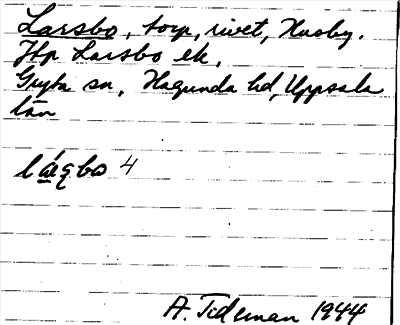 Larsbo, torp, rivet, Husby.
Jfr Larsbo ek.
Gryta sn, Hagunda hd, Uppsala
län
4
A. Tideman 1944